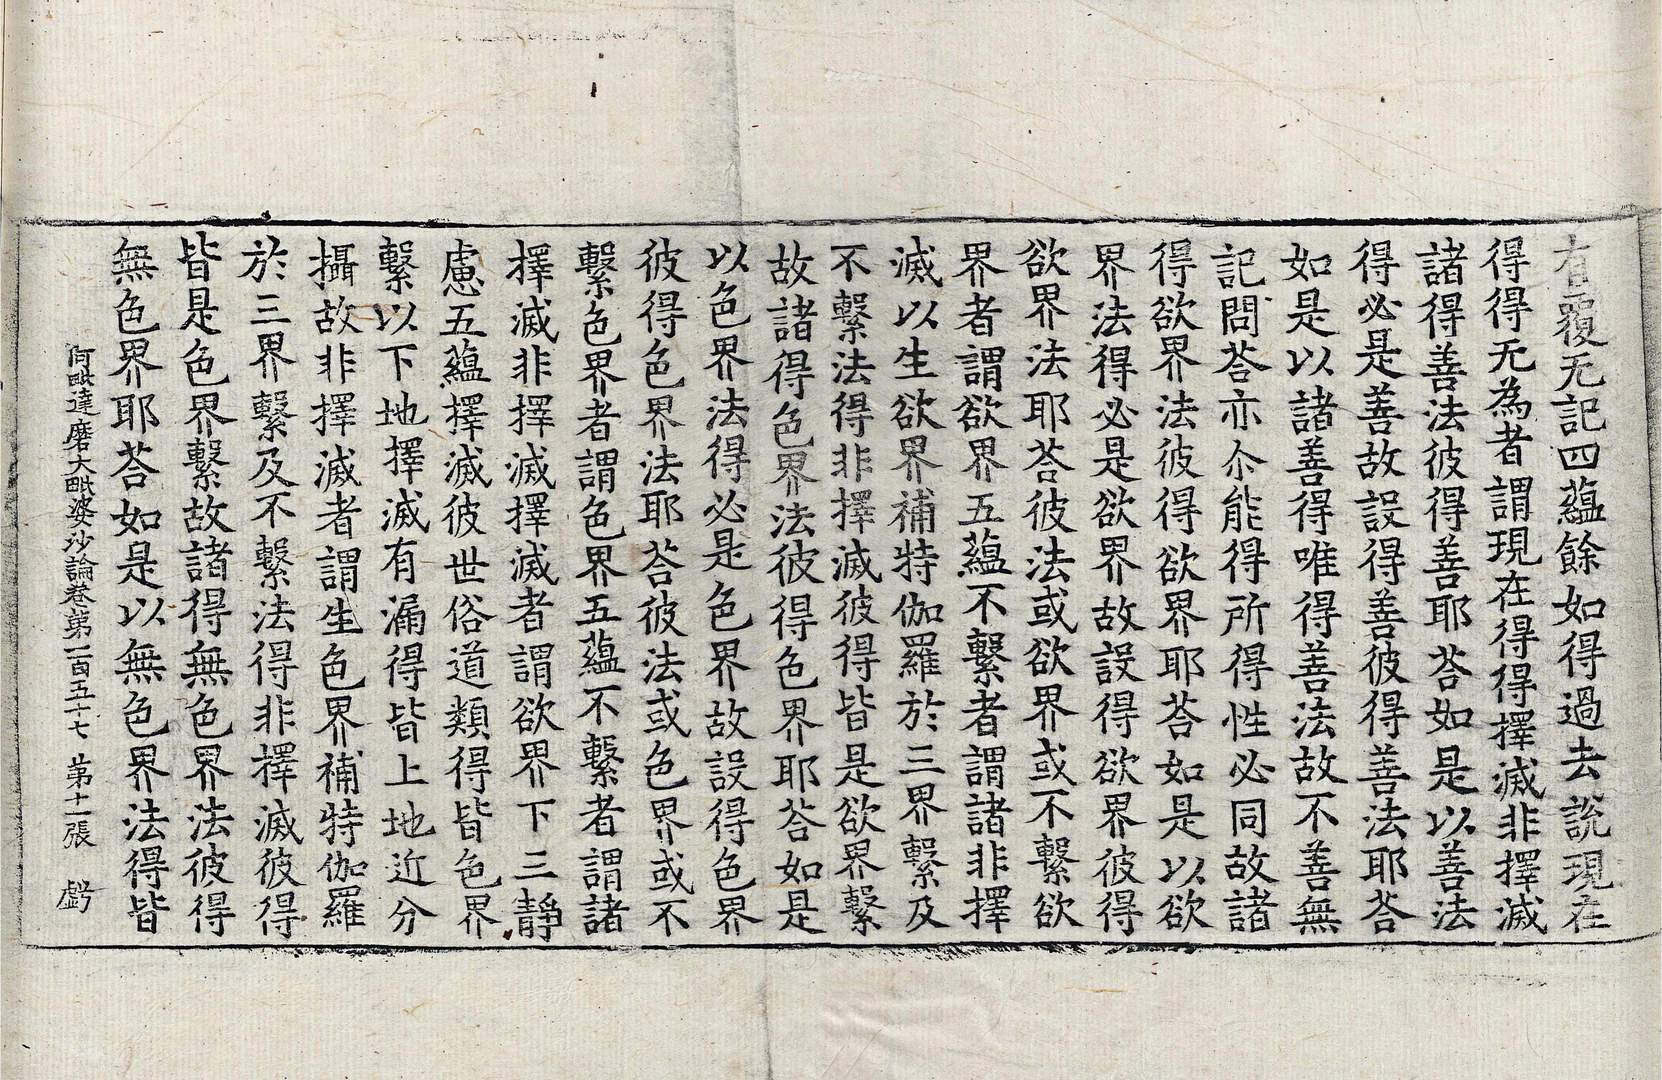 有覆无記四蘊餘如得過去說現在
得得无為者謂現在得得擇滅非擇滅
諸得善法彼得善耶荅如是以善法
得必是善故設得善彼得善法耶荅
如是以諸善得唯得善法故不善無
記問荅亦尒能得所得性必同故諸
得欲界法彼得欲界耶荅如是以欲
界法得必是欲界故設得欲界彼得
欲界法耶荅彼法或欲界或不繫欲
界者謂欲界五蘊不繫者謂諸非擇
滅以生欲界補特伽羅於三界繫及
不繫法得非擇滅彼得皆是欲界繫
故諸得色界法彼得色界耶荅如是
以色界法得必是色界故設得色界
彼得色界法耶荅彼法或色界或不
繫色界者謂色界五蘊不繫者謂諸
擇滅非擇滅擇滅者謂欲界下三靜
慮五蘊擇滅彼世俗道類得皆色界
繫以下地擇滅有漏得皆上地近分
攝故非擇滅者謂生色界補特伽羅
於三界繫及不繫法得非擇滅彼得
皆是色界繫故諸得無色界法彼得
無色界耶荅如是以無色界法得皆
阿毗達磨大毗婆沙論卷第一百五十七 第十一張 虧